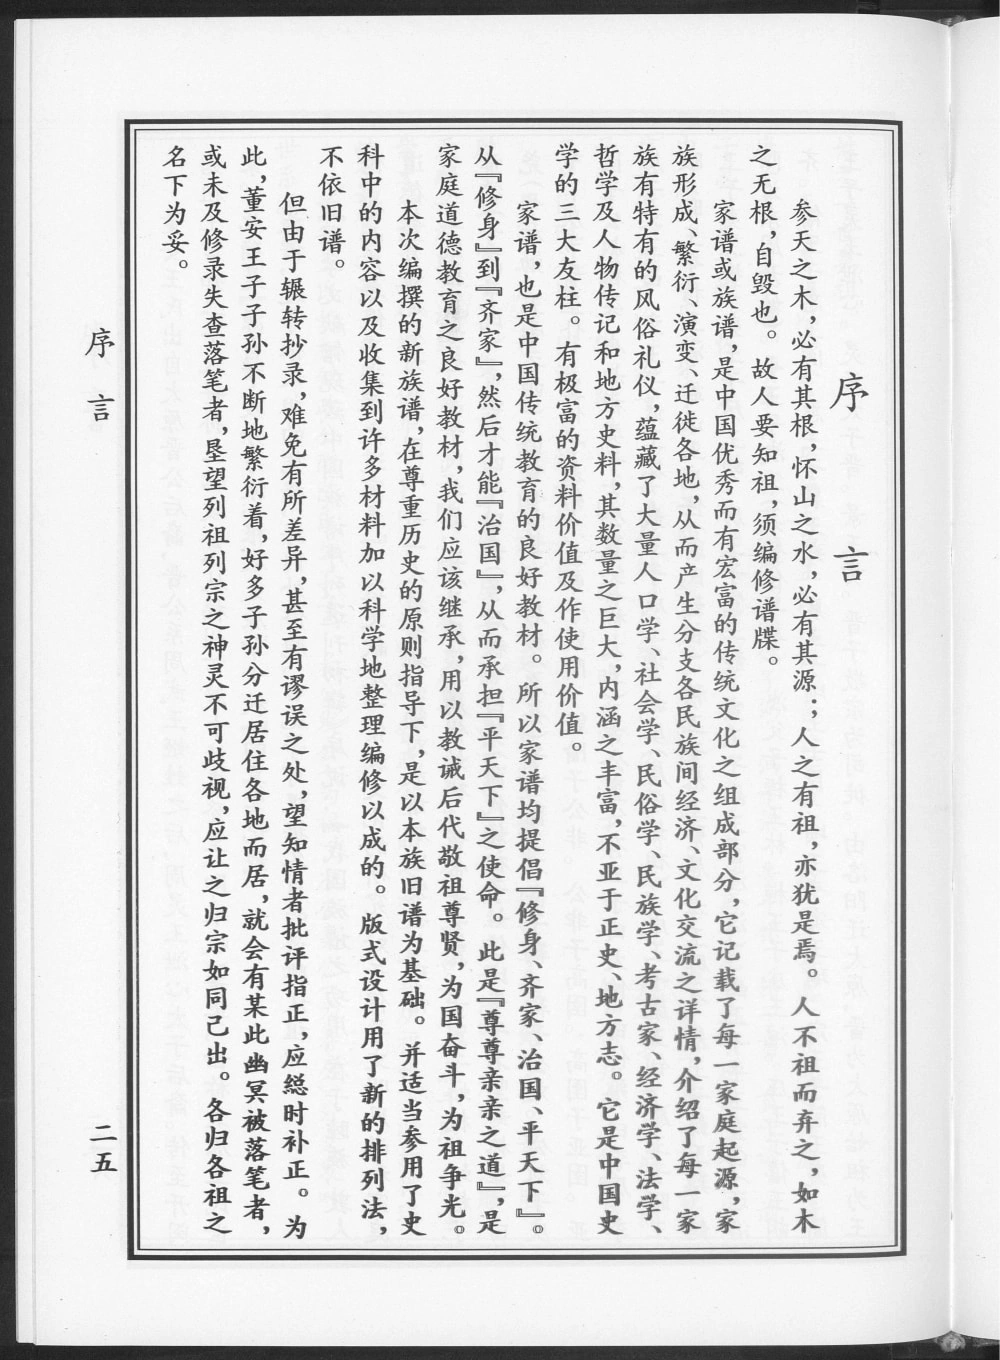 序言
参天之木，必有其根，怀山之水，必有其源；人之有祖，亦犹是焉。人不祖而弃之，如木
之无根，自毁也。故人要知祖，须编修谱牒。
家谱或族谱，是中国优秀而有宏富的传统文化之组成部分，它记载了每一家庭起源，家
族形成、繁衍、演变、迁徙各地，从而产生分支各民族间经济、文化交流之详情，介绍了每一家
族有特有的风俗礼仪，蕴藏了大量人口学、社会学、民俗学、民族学、考古家、经济学、法学、
哲学及人物传记和地方史料，其数量之巨大，内涵之丰富，不亚于正史、地方志。它是中国史
学的三大友柱。有极富的资料价值及作使用价值。
家谱，也是中国传统教育的良好教材。所以家谱均提倡『修身、齐家、治国、平天下』。
从『修身』到『齐家』，然后才能『治国』，从而承担『平天下』之使命。此是『尊尊亲亲之道』，是
家庭道德教育之良好教材，我们应该继承，用以教诫后代敬祖尊贤，为国奋斗，为祖争光。
本次编撰的新族谱，在尊重历史的原则指导下，是以本族旧谱为基础。并适当参用了史
科中的内容以及收集到许多材料加以科学地整理编修以成的。版式设计用了新的排列法，
不依旧谱。
但由于辗转抄录，难免有所差异，甚至有谬误之处，望知情者批评指正，应縂时补正。为
此，董安王子子孙不断地繁衍着，好多子孙分迁居住各地而居，就会有某此幽冥被落笔者，
或未及修录失查落笔者，恳望列祖列宗之神灵不可歧视，应让之归宗如同己出。各归各祖之
名下为妥。
序言
二五